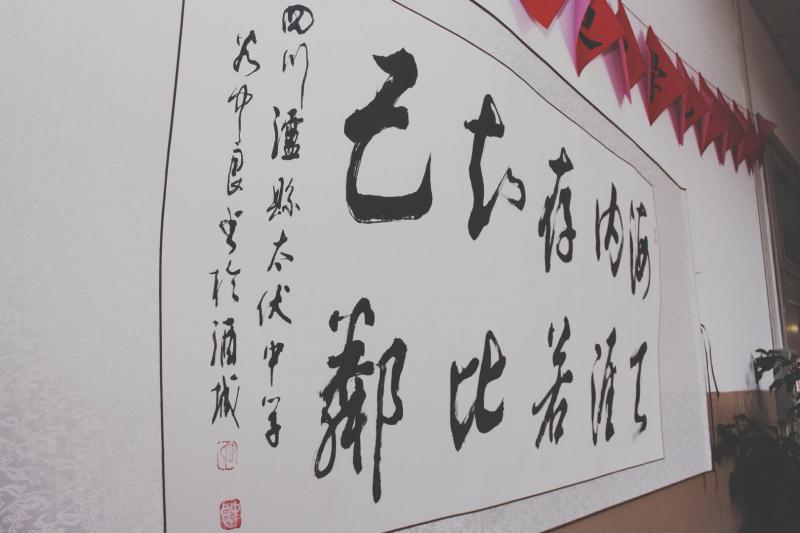 海内存知己
天涯若比鄰
四川瀘縣太伏中学
中良书於酒城